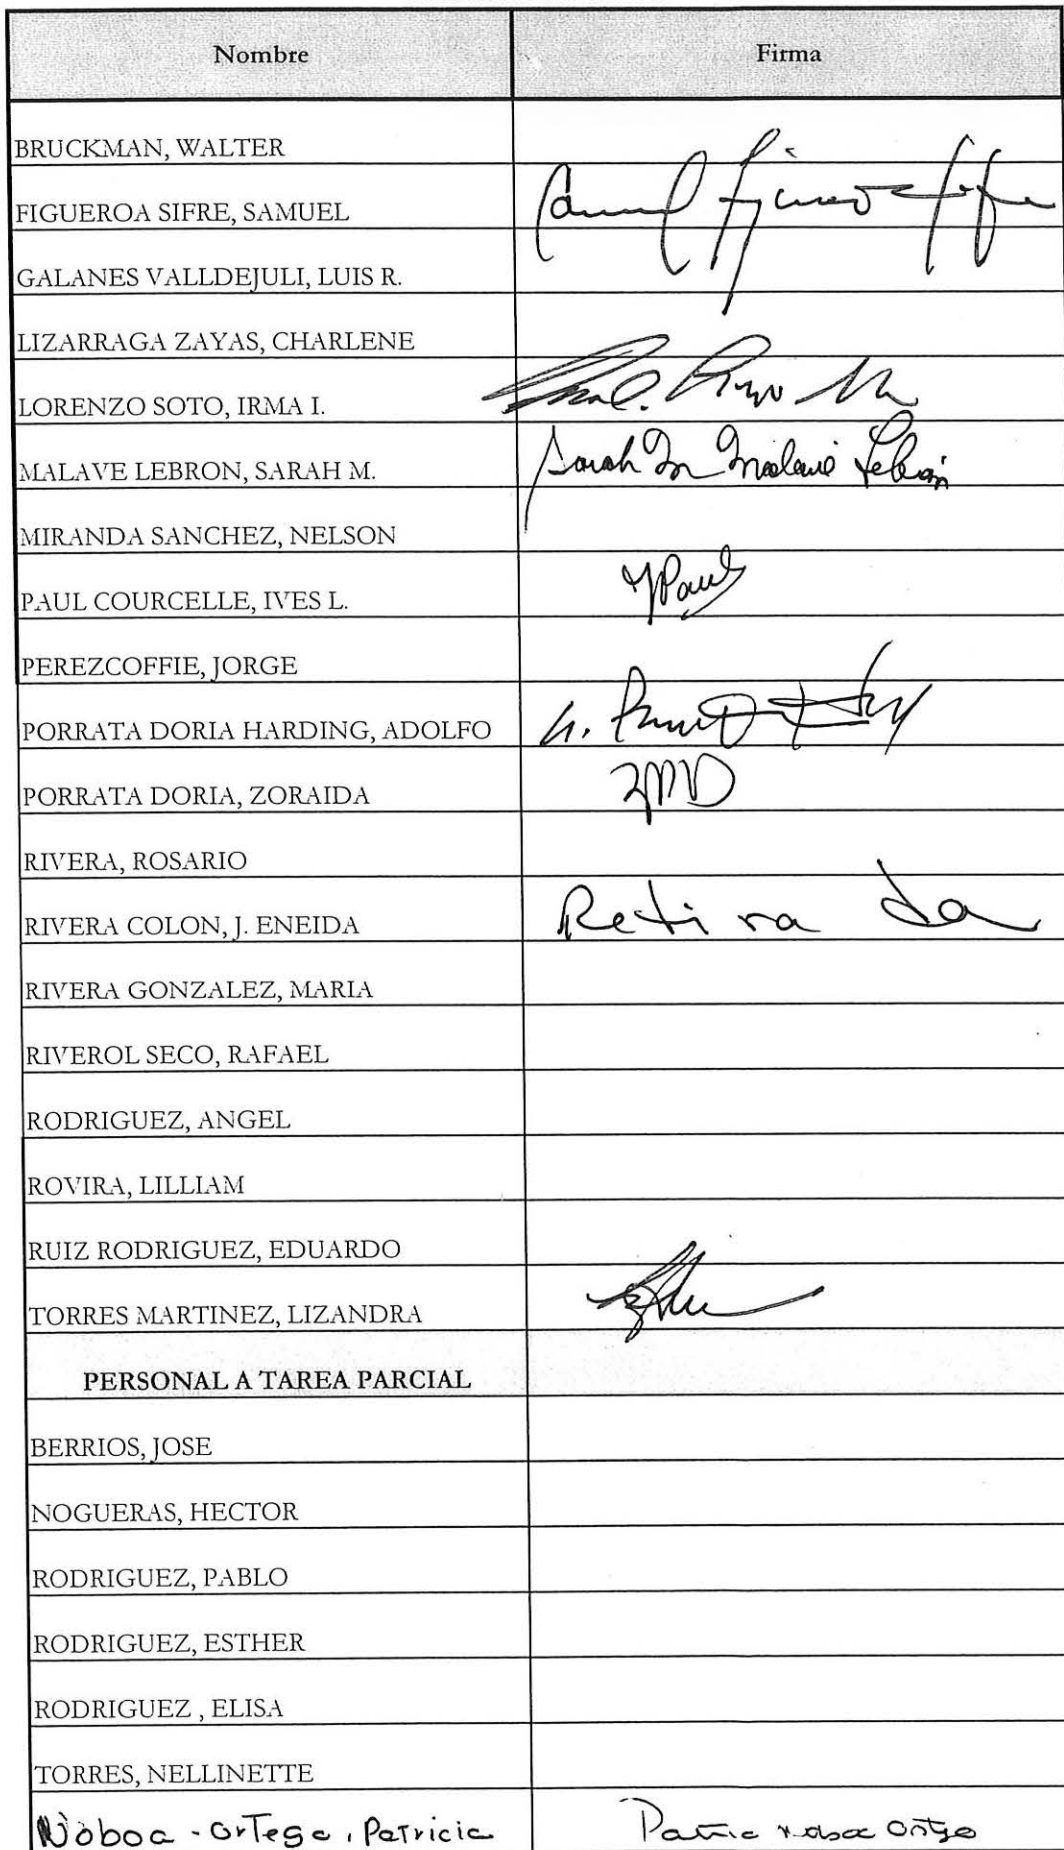 Nombre Firma
BRUCKMAN, WALTER
FIGUEROA SIFRE, SAMUEL Samuel Figueroa Sifre
GALANES VALLDEJULI, LUIS R.
LIZARRAGA ZAYAS, CHARLENE
LORENZO SOTO, IRMA I.
MALAVE LEBRON, SARAH M. Sarah M Malavé Lebrón
MIRANDA SANCHEZ, NELSON
PAUL COURCELLE, IVES L. YPaul
PEREZCOFFIE, JORGE
PORRATA DORIA HARDING, ADOLFO A.
PORRATA DORIA, ZORAIDA ZPD
RIVERA, ROSARIO
RIVERA COLON, J. ENEIDA Retirada
RIVERA GONZALEZ, MARIA
RIVEROL SECO, RAFAEL
RODRIGUEZ, ANGEL
ROVIRA, LILLIAM
RUIZ RODRIGUEZ, EDUARDO
TORRES MARTINEZ, LIZANDRA
PERSONAL A TAREA PARCIAL
BERRIOS, JOSE
NOGUERAS, HECTOR
RODRIGUEZ, PABLO
RODRIGUEZ, ESTHER
RODRIGUEZ , ELISA
TORRES, NELLINETTE
Noboa - Ortega, Patricia Patric Noboa Ortega